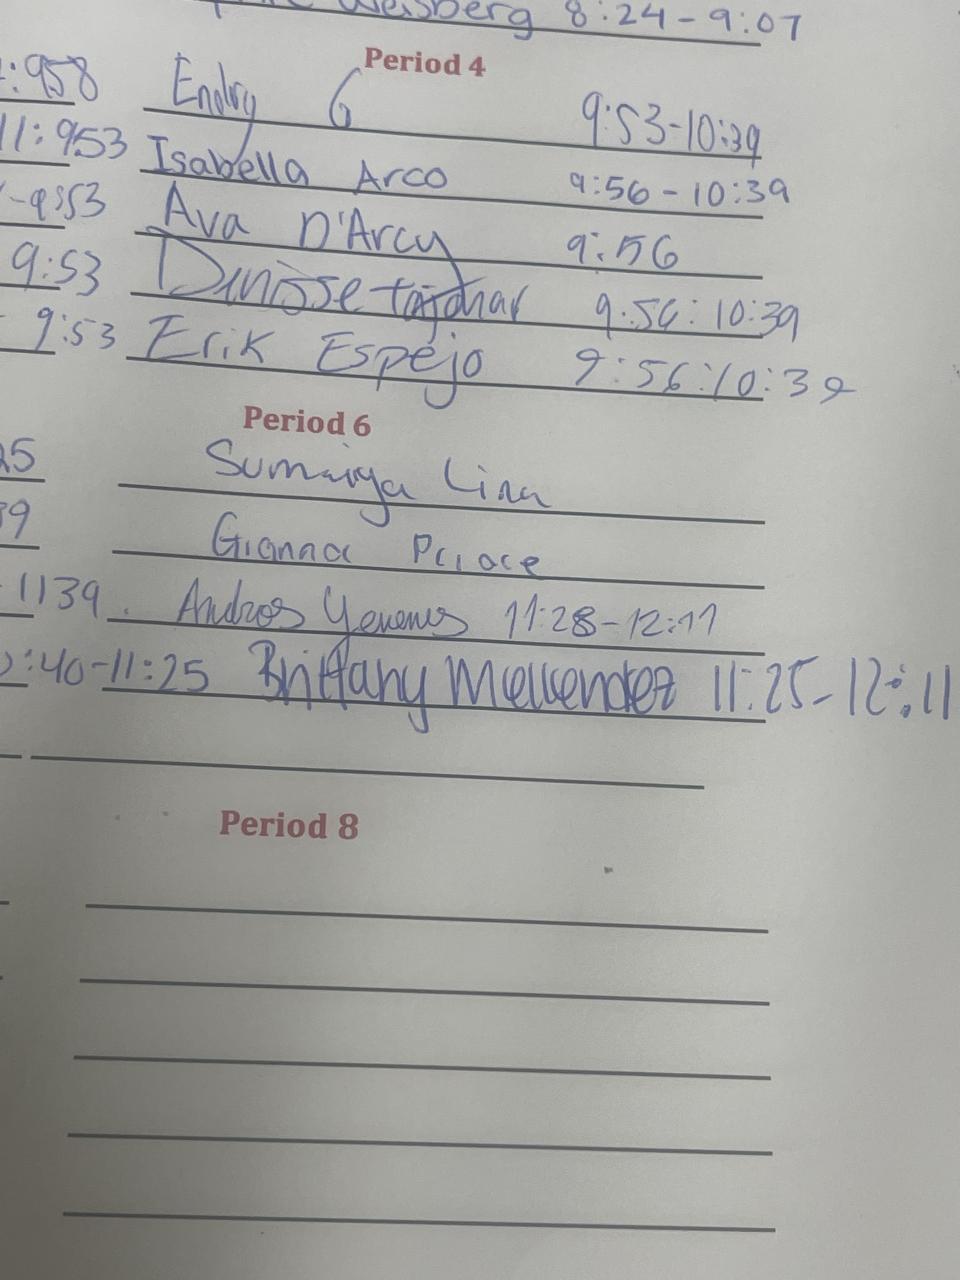 Weisberg 8:24-9:07
Period 4
:958 Endry G 9:53-10:39
11:953 Isabella Arco 9:56-10:39
-9:53 Ava D'Arcy 9:56
9:53 9:56:10:39
9:53 Erik Espejo 9:56:10:39
Period 6
25 Sumaiya Lina
39 Gianna
1139. Andros 11:28-12:11
:40-11:25 Brittany 11:25-12:11
Period 8